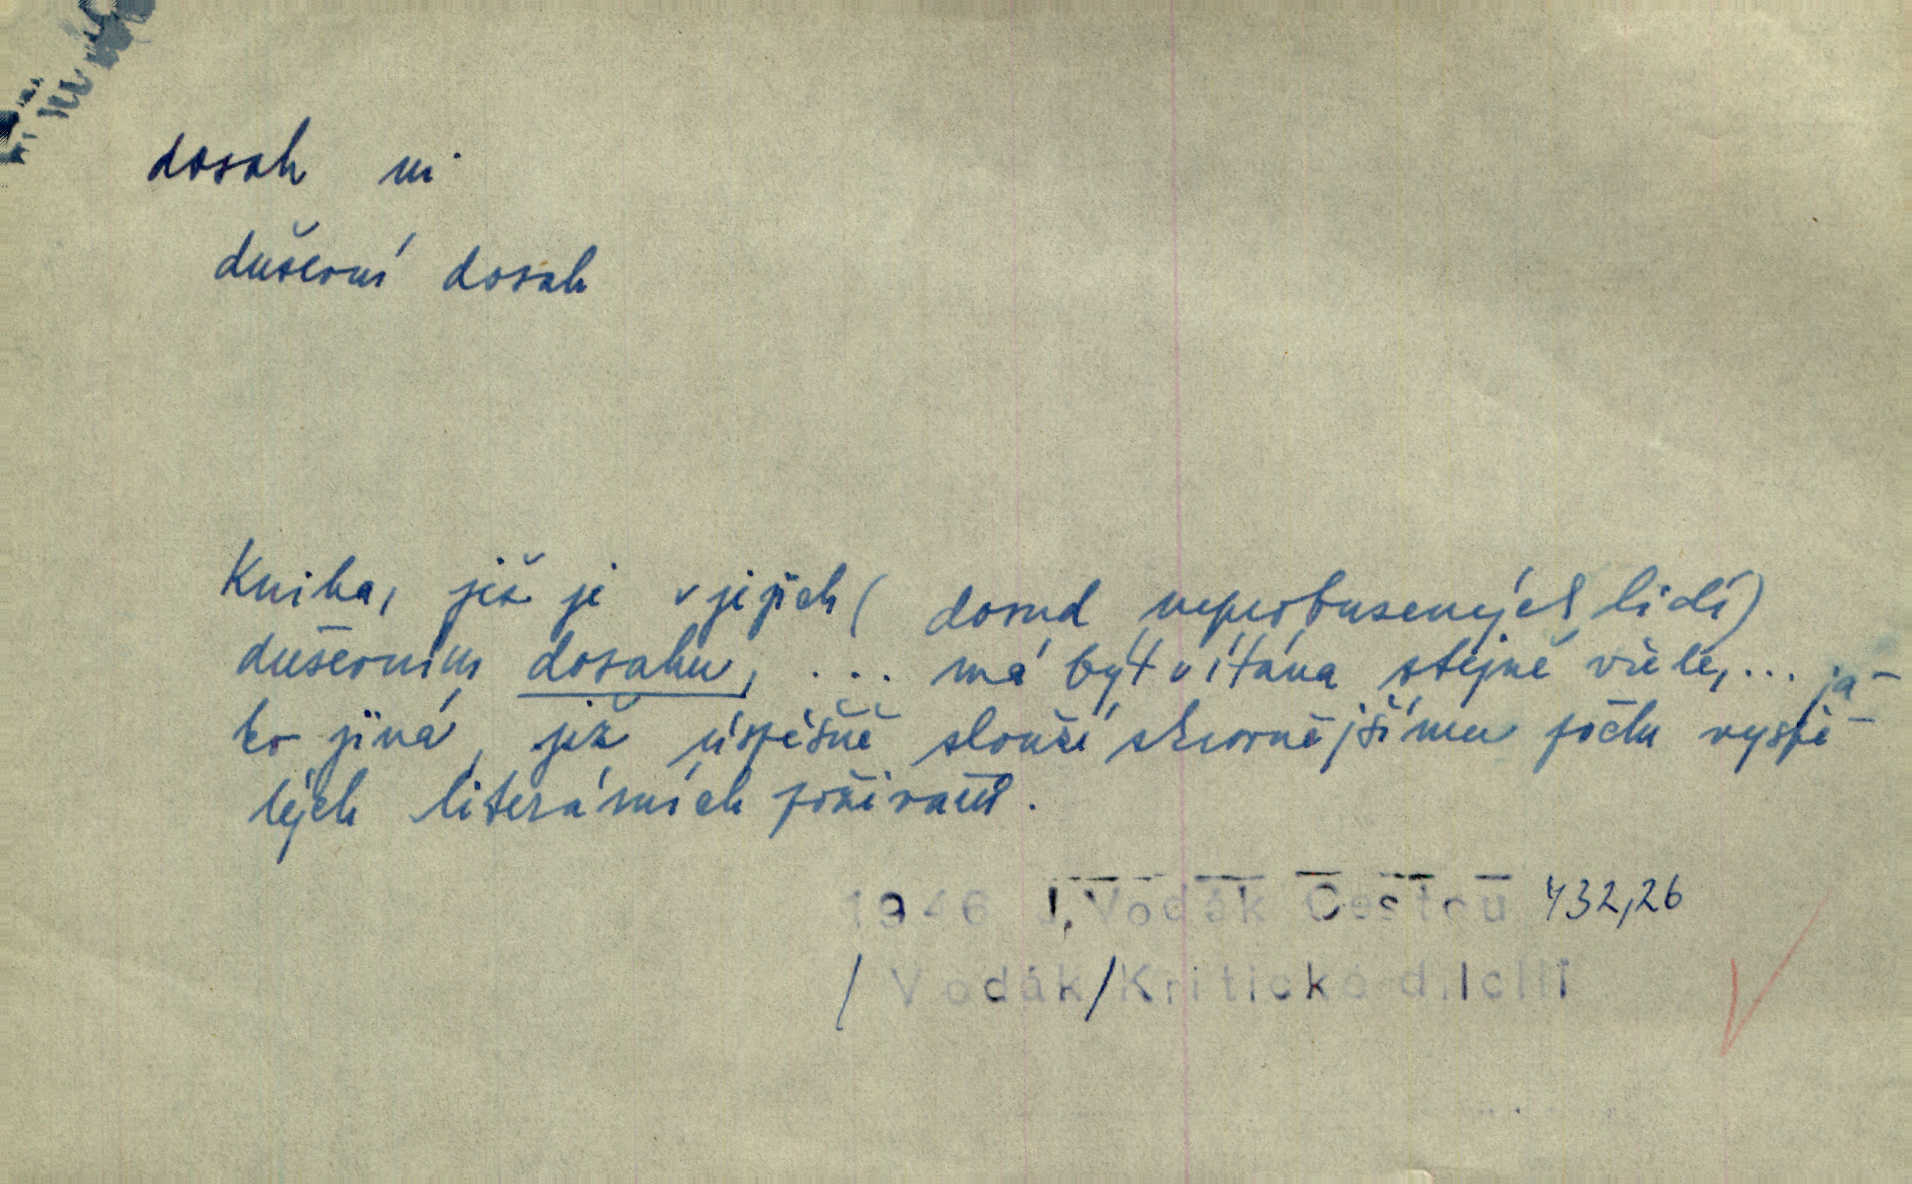 dosah m
duševní dosah
Kniha, jež je v jejich (dosud neprobuzených lidí)
duševním dosahu, ... má být vítána stejně vřele, ... ja-
ko jiná, jež úspěšně slouží skrovnějšímu počtu vyspě-
lých literárních poživačů.
1946 J.Vodák Cestou 432,26
/Vodák/Kritické